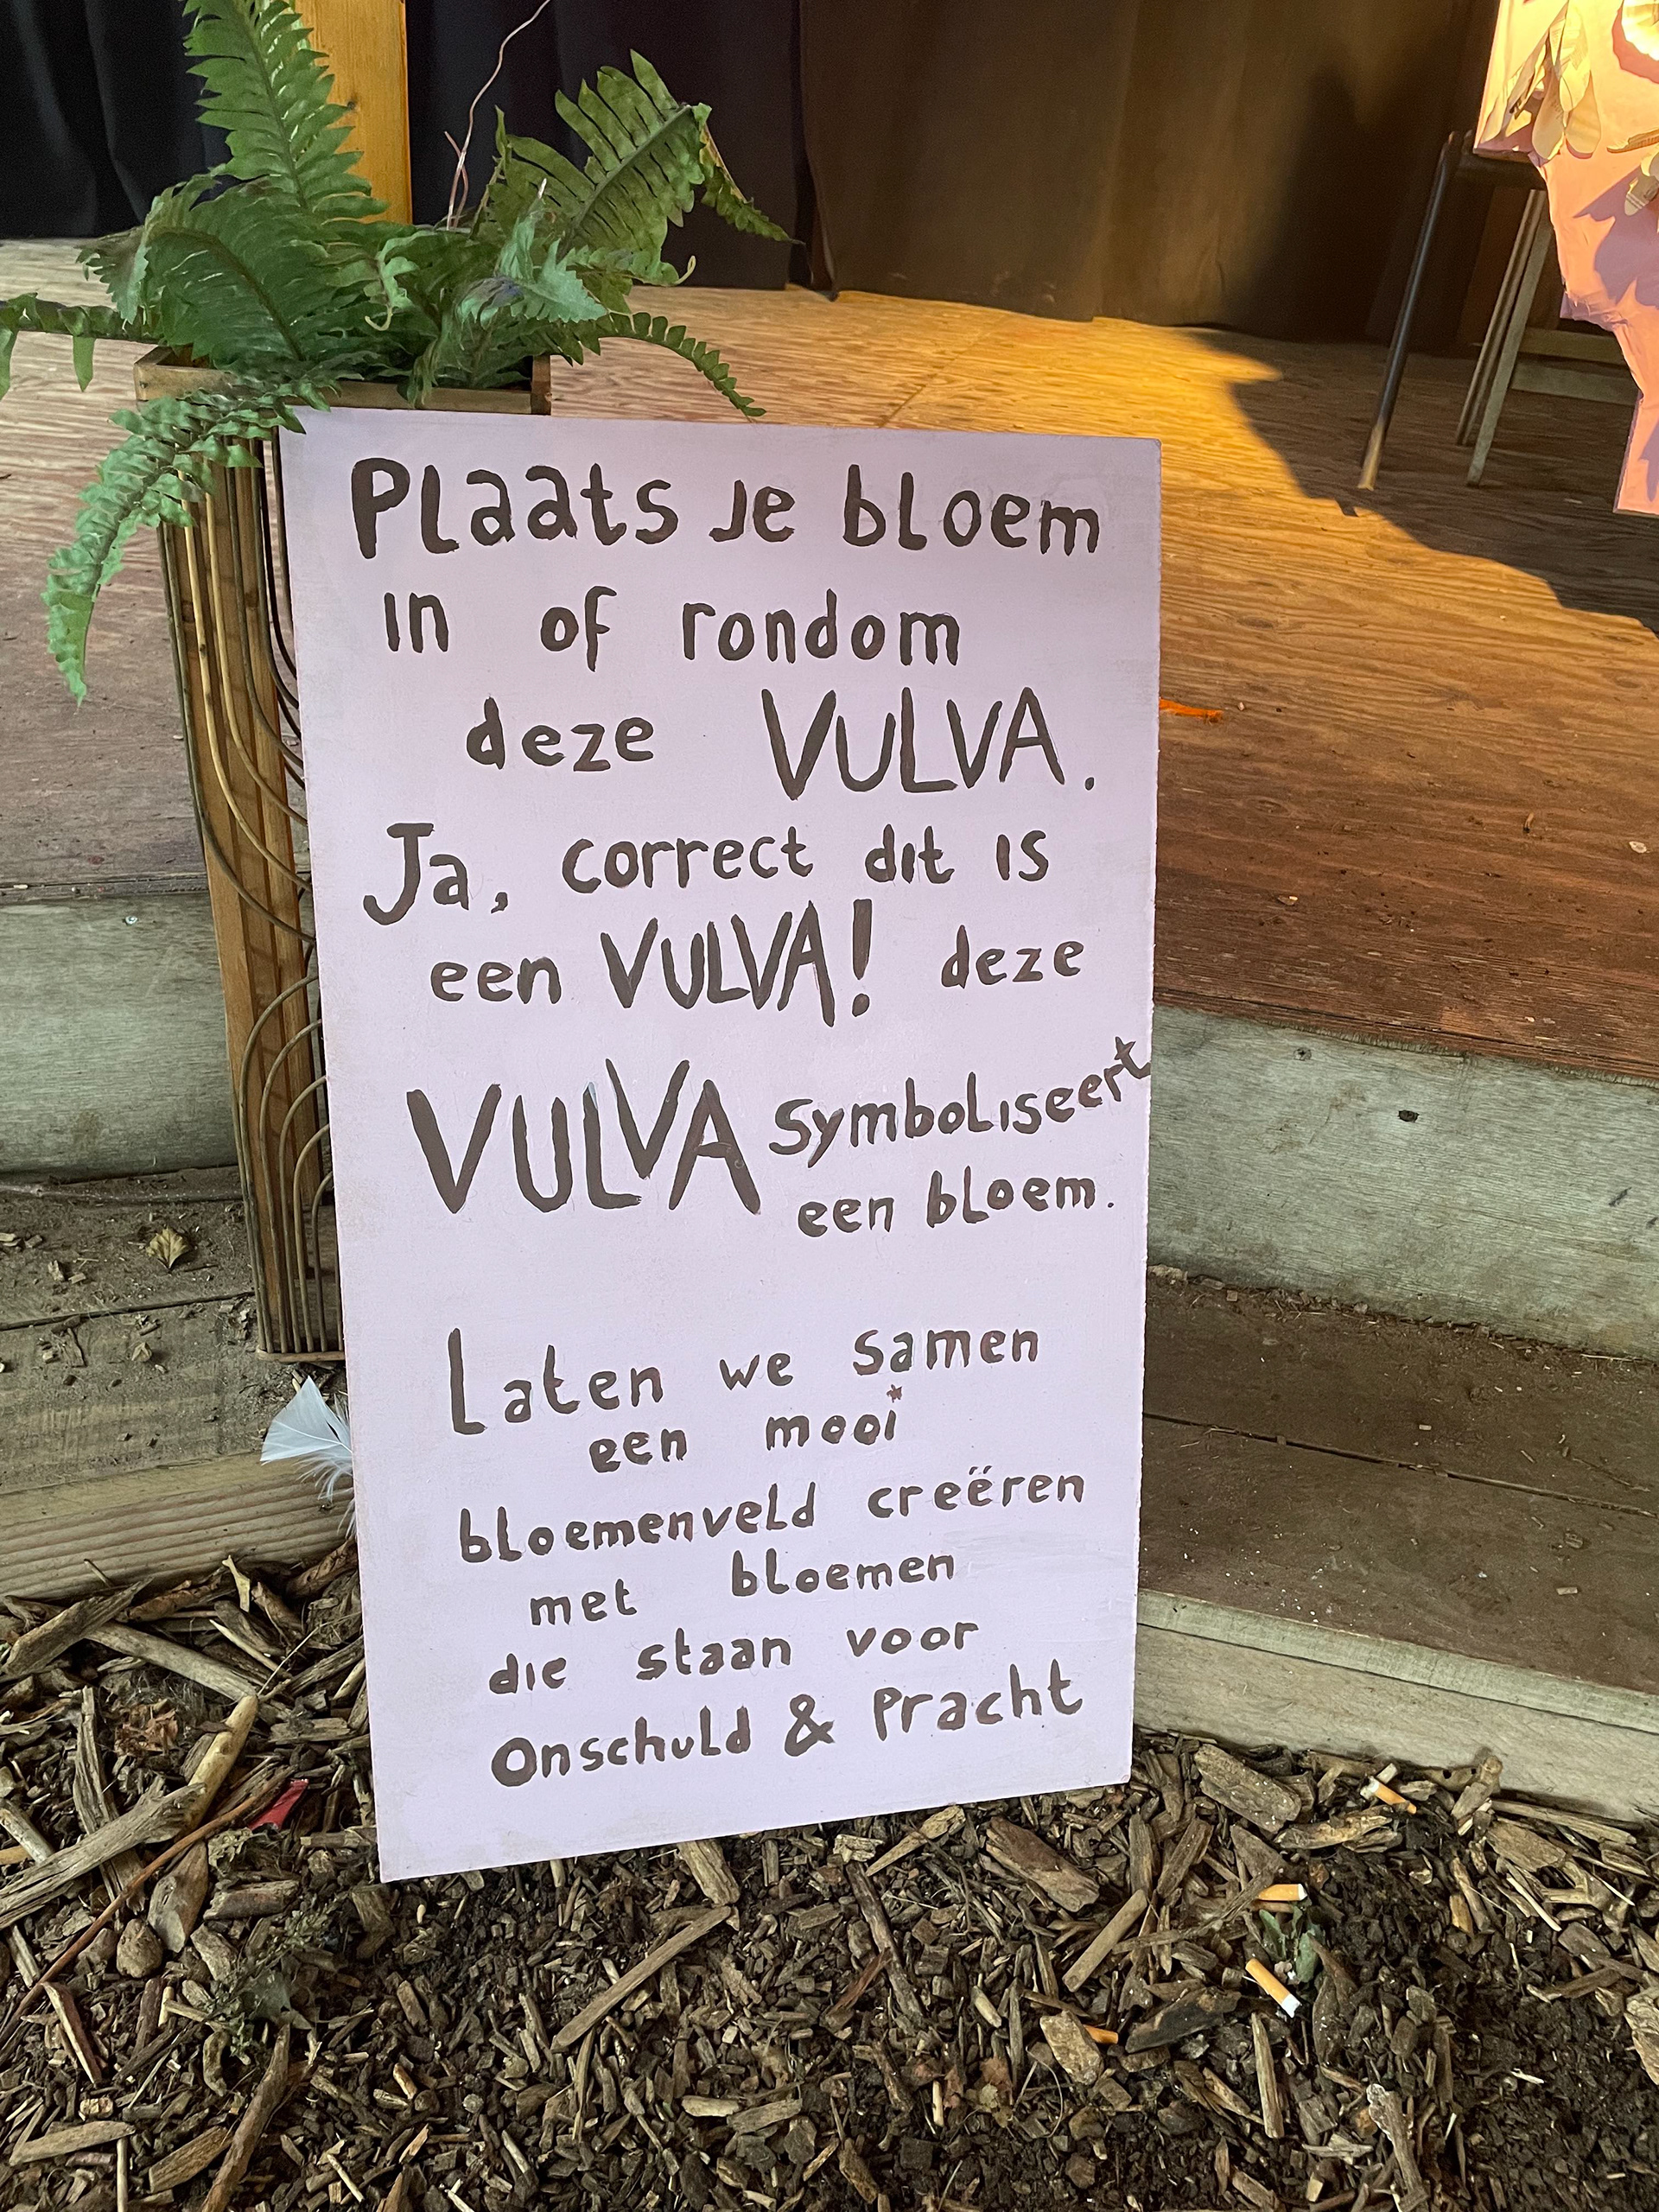 Plaats je bloem
in of rondom
deze VULVA.
Ja, correct dit is
een VULVA! deze
VULVA symboliseert
een bloem.
Laten we samen
een mooi
bloemenveld creëren
met bloemen
die staan voor
onschuld & pracht